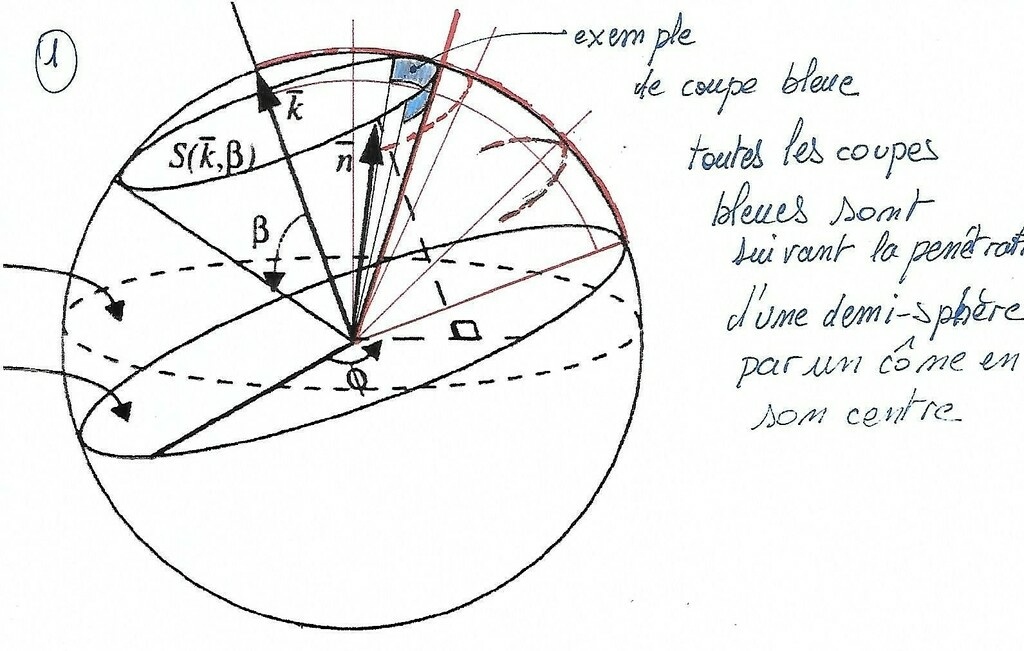 1
exemple
de coupe bleue
toutes les coupes
bleues sont
suivant la penétrat
d'une demi-sphère
par un cône en
son centre
k̅
S(k̅,β)
n̅
β
φ